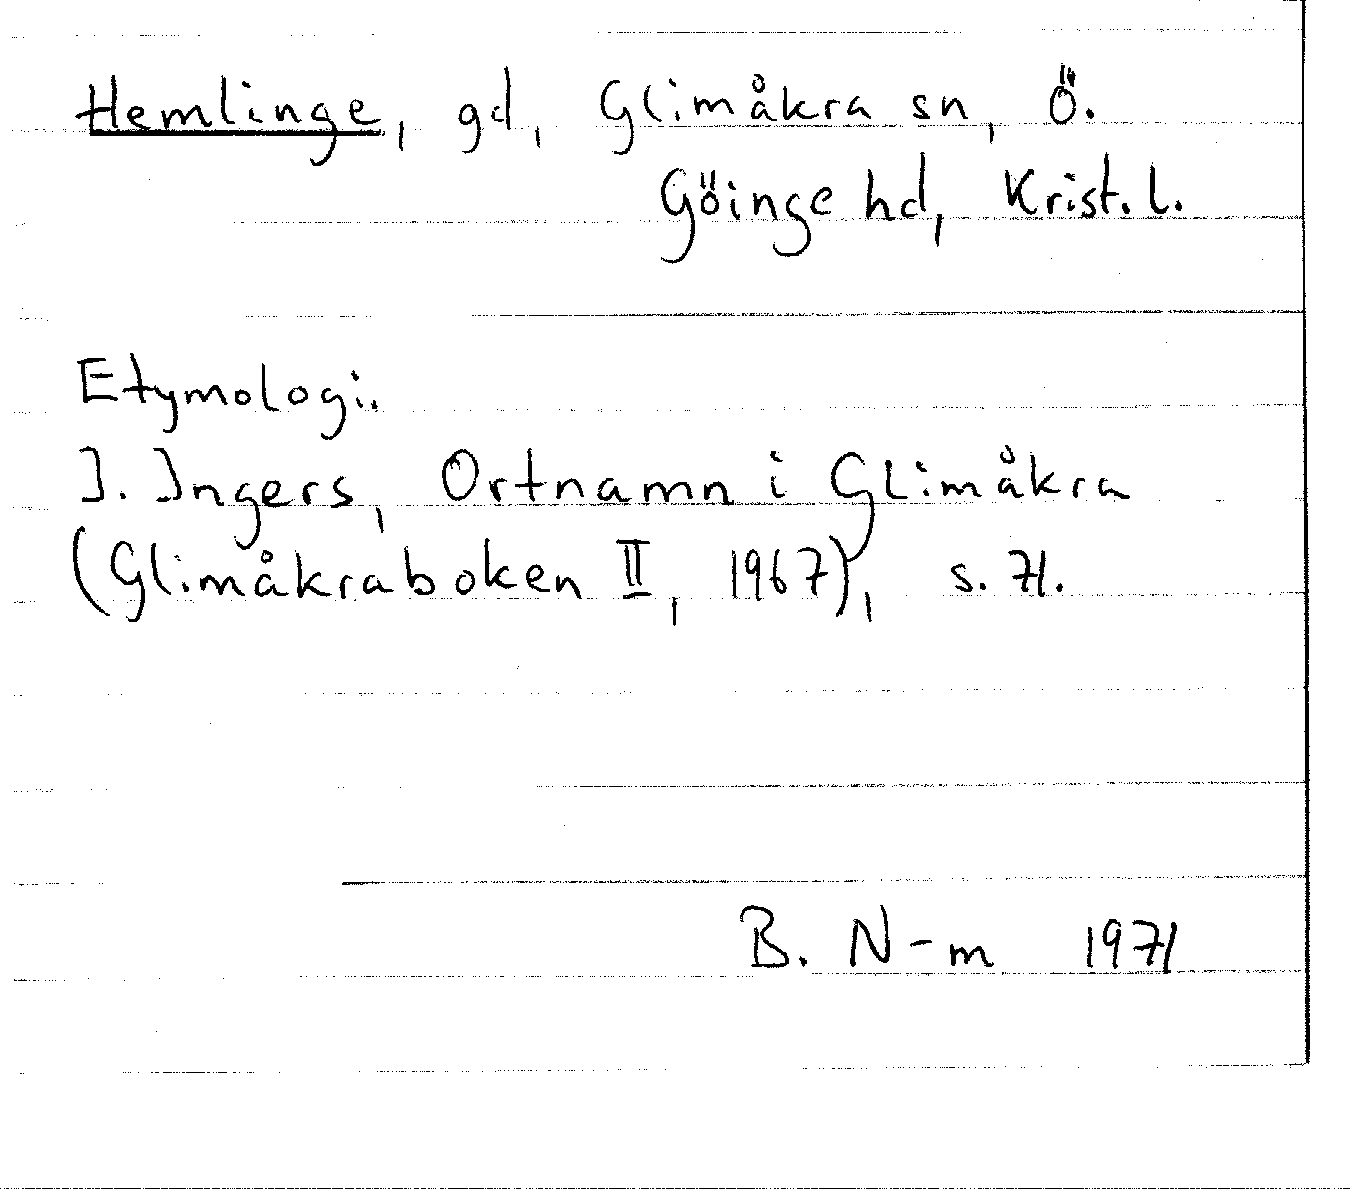 Hemlinge, gd, Glimåkra sn, Ö.
Göinge hd, Krist. l.
Etymologi.
I. Ingers, Ortnamn i Glimåkra
(Glimåkraboken II, 1967), s. 71.
B. N-m 1971